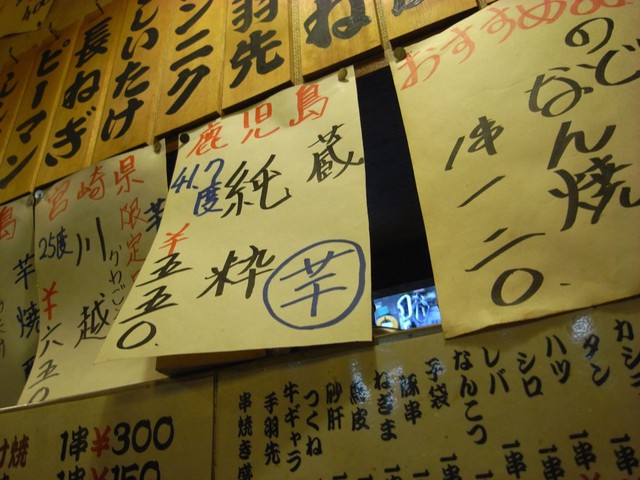 おすすめ
のどなん焼
1串 一二〇
鹿児島
蔵
純粋
芋
41.7度
¥五五〇
宮崎県
限定
川越
かわごえ
25度
¥六五〇
島
芋焼
ね
手羽先
ンニク
しいたけ
長ねぎ
ピーマン
カシ
タン
ハツ
シロ
レバ
なんこつ
子袋
豚串
ねぎま
鶏皮
砂肝
つくね
牛ギャラ
手羽先
串焼き盛
1串
1串
1串
1串
1串
け焼
1串¥300
1串¥150